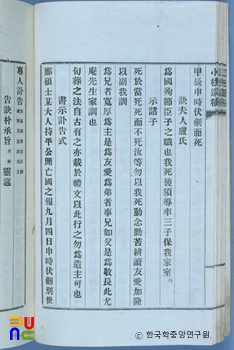 甲辰申時伏劍而死
訣夫人盧氏
爲國殉節臣子之職也我死後須導率三子保我家室
示諸子
死於當死死而不死汝等勿以我死勤念勤苦耕讀友愛加隆
以副我訓
爲兄者寬厚爲主是爲友愛爲弟者事兄如父是爲敬長此尤
庵先生家訓也
旬葬之法自古有之亦載於禮文以此行之勿爲造主可也
書示訃告式
鄭碩士某大人持平公聞亡國之報九月四日申時伏劍別世
專人訃告
告訣朴承旨 靈筵
한국학중앙연구원